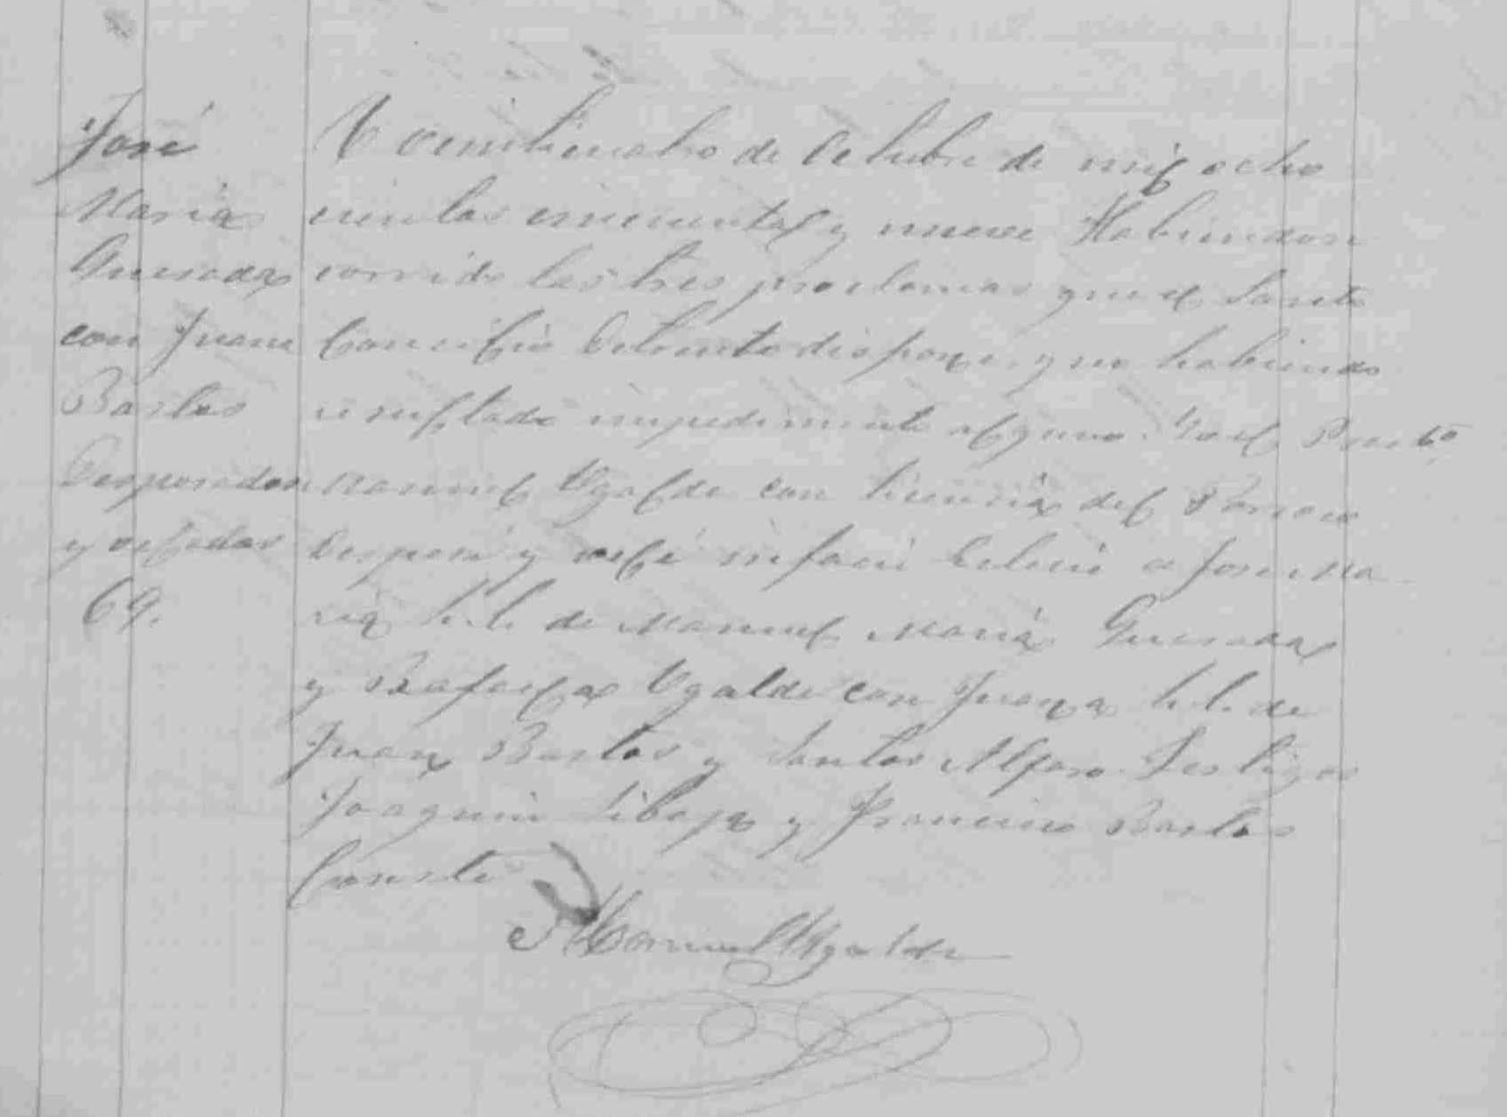 José
Maria
Quesada
con Juana
Bastos
Desposados
y velados
69.
Veinticuatro de Octubre de mil ocho
cientos cincuenta y nueve Habiendose
corrido las tres proclamas que el Santo
Concilio de Trento dispone, y no habiendo
resultado impedimento alguno. Yo el Presb.o
Manuel Ugalde con licencia del Parroco
Desposé y velé infacie Eclecie a Jose Ma
ria h. l. de Manuel Maria Quesada
y Rafaela Ugalde con Juana h. l. de
Juan Bastos y Santos Alfaro. Testigos
Joaquin Sibaja y Francisco Bastos
Conste
Manuel Ugalde